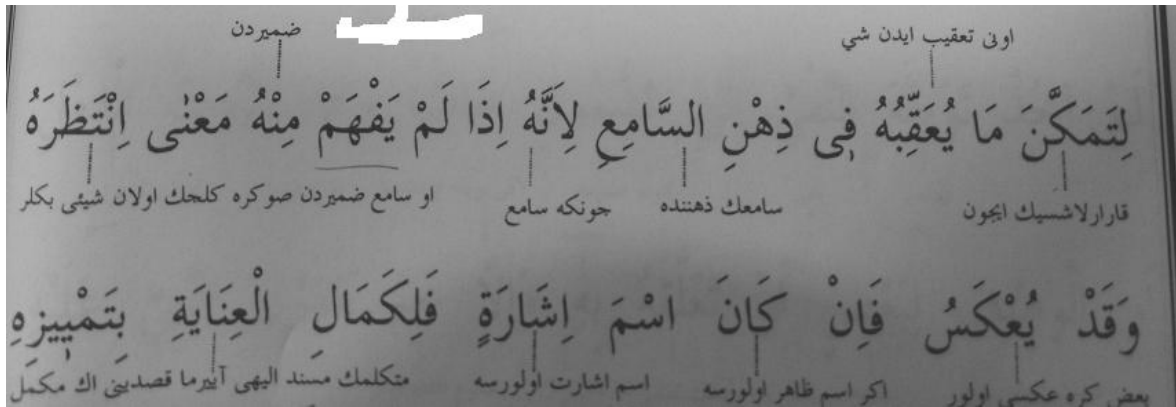 اونى تعقيب ايدن شي ضميردن
لِتَمَكَّنَ مَا يُعَقِّبُهُ فِى ذِهْنِ السَّامِعِ لِاَنَّهُ اِذَا لَمْ يَفْهَمْ مِنْهُ مَعْنٰى اِنْتَظَرَهُ
قارارلاشسيك ايجون سامعك ذهننده جونكه سامع او سامع ضميردن صوكره كلجك اولان شيئى بكلر
وَقَدْ يُعْكَسُ فَاِنْ كَانَ اسْمَ اِشَارَةٍ فَلِكَمَالِ الْعِنَايَةِ بِتَمْيِيزِهِ
بعض كره عكسى اولور اكر اسم ظاهر اولورسه اسم اشارت اولورسه متكلمك مسند اليهى آييرما قصدينى اك مكمل